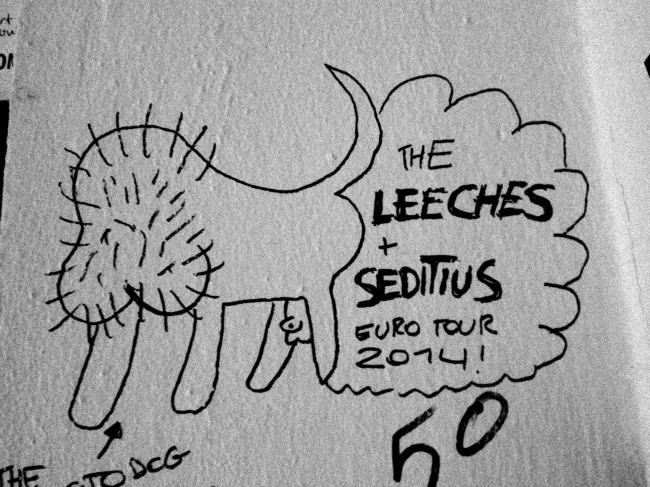 THE
LEECHES
+
SEDITIUS
EURO TOUR
2014!
50
THE